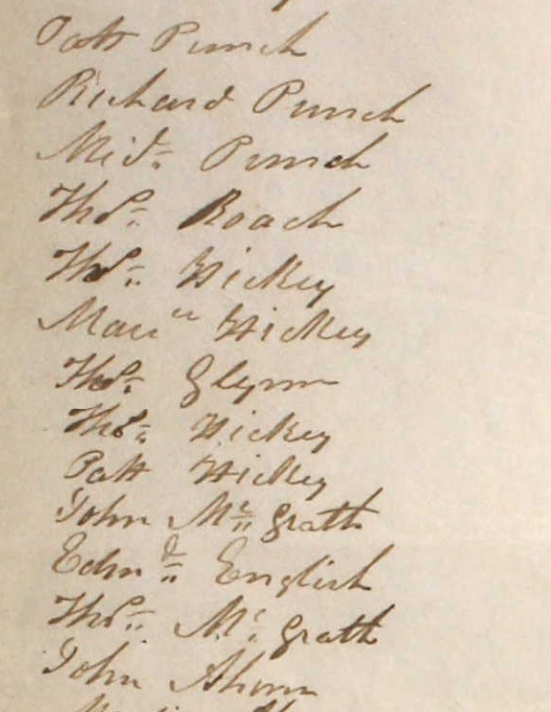 Patt Punch
Richard Punch
Mich: Punch
Thos: Roach
Thos: Hickey
Mau ce Hickey
Thos: Glynn
Thos: Hickey
Patt Hickey
John Mc: Grath
Edmd: English
Thos: Mc: Grath
John Ahern